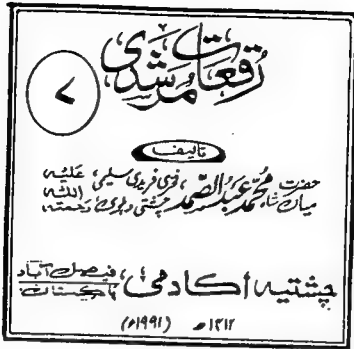 رُقعاتِ مُرشدی
۷
تالیف
حضرت میاں شاہ محمد عبد الصمد فخری فریدی سلیمی چشتی دہلوی رحمۃ اللہ علیہ
چشتیہ اکادمی، فیصل آباد پاکستان
۱۴۱۲ھ (۱۹۹۱ء)